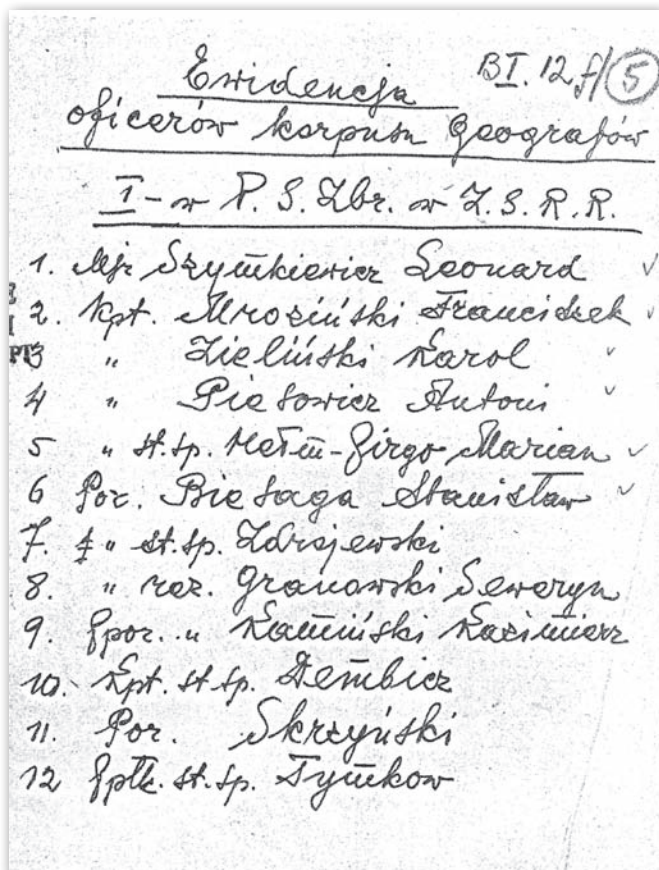 BI. 12f/5
Ewidencja
oficerów korpusu Geografów
I-w P. S. Zbr. w Z. S. R. R.
1. Mjr Szymkiewicz Leonard ✓
2. Kpt. Mroziński Franciszek ✓
3 " Zieliński Karol ✓
4 " Antoni ✓
5 " st.sp. Hełm-Pirgo Marian ✓
6 Por. Biesaga Stanisław ✓
7. " st.sp. Zdrojewski
8. " rez. Granowski Seweryn
9. Ppor. " Kamiński Kazimierz
10. Kpt. st.sp. Dembicz
11. Por. Skrzyński
12 Ppłk. st.sp. Tymkow